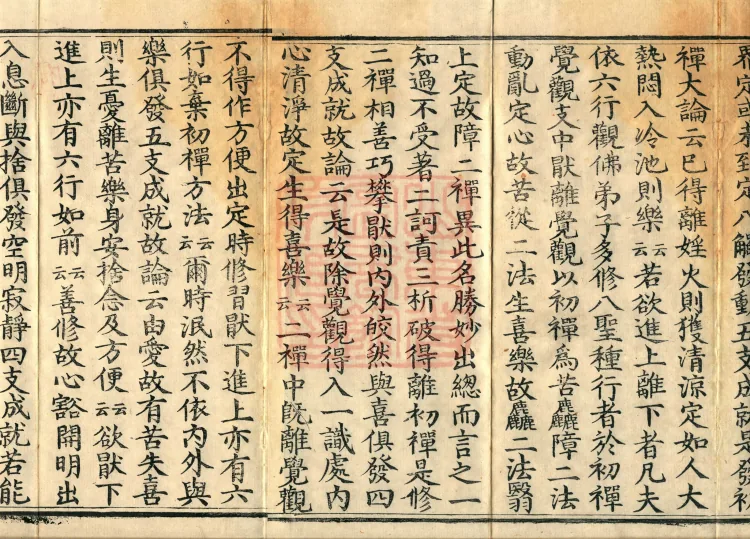 定八觸發動五支成就是發初
禪大論云已得離婬火則獲清涼定如人大
熱悶入冷池則樂云云若欲進上離下者凡夫
依六行觀佛弟子多修八聖種行者於初禪
覺觀支中猒離覺觀以初禪為苦麤障二法
動亂定心故苦從二法生喜樂故麤二法翳
上定故障二禪異此名勝妙出總而言之一
知過不受著二訶責三析破得離初禪是修
二禪相善巧攀猒則内外皎然與喜俱發四
支成就故論云是故除覺觀得入一識處内
心清淨故定生得喜樂云云二禪中既離覺觀
不得作方便出定時修習猒下進上亦有六
行如棄初禪方法云云爾時泯然不依内外與
樂俱發五支成就故論云由愛故有苦失喜
則生憂離苦樂身安捨念及方便云云欲猒下
進上亦有六行如前云云善修故心豁開明出
入息斷與捨俱發空明寂靜四支成就若能